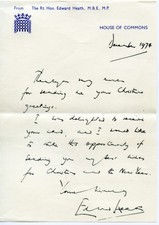 From: The Rt. Hon. Edward Heath, M.B.E., M.P.
HOUSE OF COMMONS
December 1974
Thank you very much
for sending me your Christmas
greetings.
I was delighted to receive
your card, and I would like
to take this opportunity of
sending you my best wishes
for Christmas and the New Year.
Yours sincerely
Edward Heath